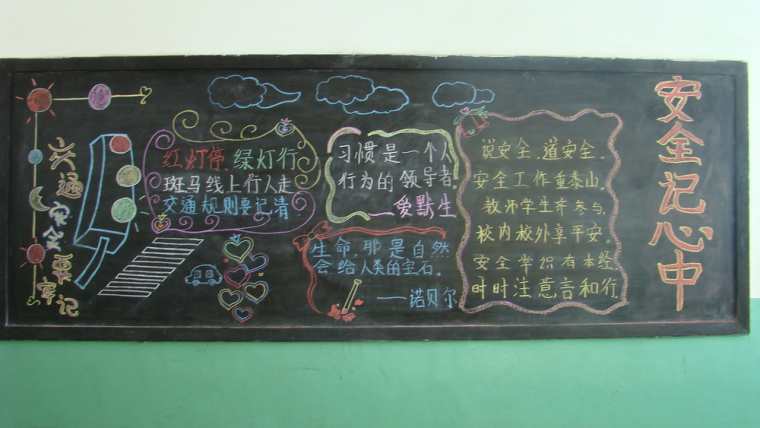 交通安全要牢记
红灯停 绿灯行
斑马线上行人走
交通规则要记清
习惯是一个人
行为的领导者。
——爱默生
生命,那是自然
会给人类的宝石。
——诺贝尔
说安全、道安全。
安全工作重泰山。
教师学生齐参与。
校内校外享平安。
安全常识有本经
时时注意言和行
安全记心中